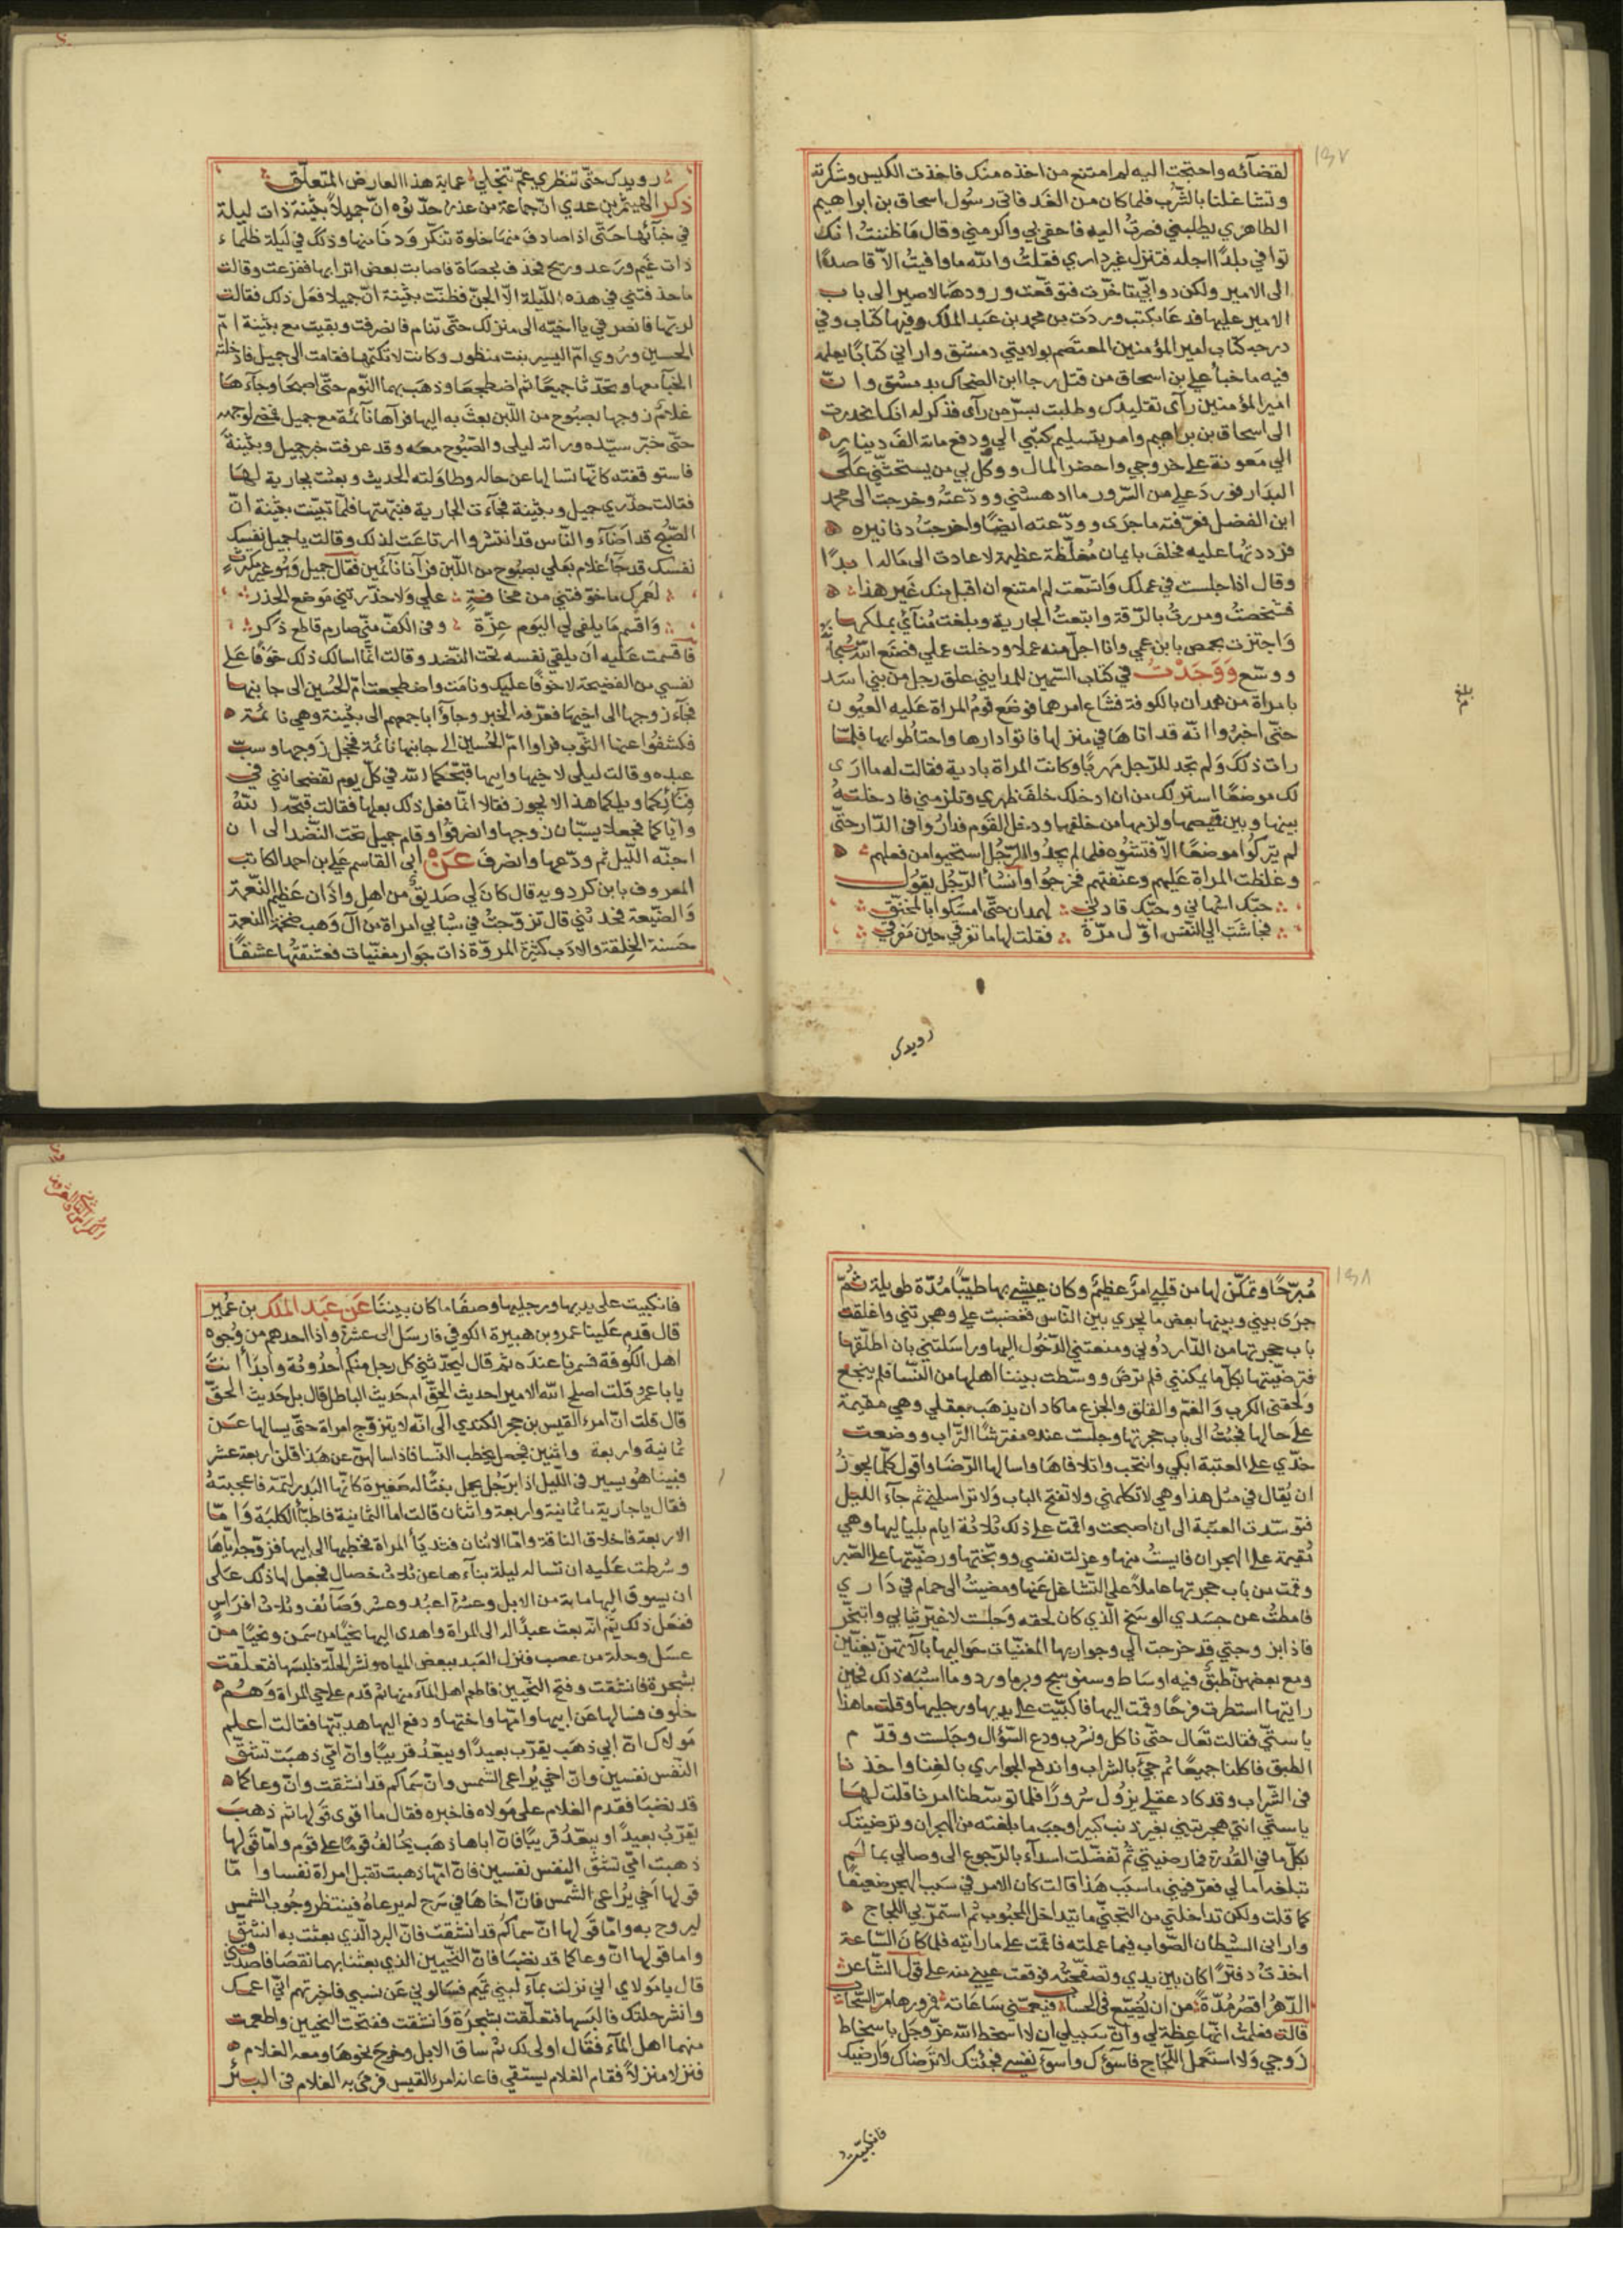 ١٣٧
لقضائه واحتجت اليه لم امتنع من اخذه منك فاخذت الكيس وشكرته
وتشاغلنا بالشرب فلما كان من الغد فاتى رسول اسحاق بن ابراهيم
الطاهري يطلبني فصرت اليه فاحفى بي واكرمني وقال ما ظننت انك
توافي بلدًا اجله فتنزل غير داري فقلت والله ما وافيت الا قاصدًا
الى الامير ولكن دوابي تاخرت فتوقعت ورودها لاصير الى باب
الامير عليها فدعا بكتب وردت من محمد بن عبد الملك وفيها كتاب وفي
درجه كتاب امير المؤمنين المعتصم بولايتي دمشق واراني كتابًا يعلمه
فيه ما خبأ علي بن اسحاق من قتل رجا ابن الضحاك بدمشق وان
امير المؤمنين رآى تقليدك وطلبت بسر من رآى فذكر له انك انحدرت
الى اسحاق بن براهيم وامر بتسليم كتبي الي ودفع مائة الف دينار
الي معونة على خروجي واحضر المال ووكل بي من يستحثني على
البدار فورد علي من السرور ما ادهشني وودعته وخرجت الى محمد
ابن الفضل فعرفته ما جرى وودعته ايضًا واخرجت دنانيره
فرددتها عليه فحلف بايمان مغلظة عظيمة لا عادت الى ماله ابدًا
وقال اذا جلست في عملك واتسعت لم امتنع ان اقبل منك غير هذا
فشخصت ومررت بالرقة وابتعت الجارية وبلغت مناي بملكها
واجتزت بحمص بابن عمي وانا اجل منه عملا ودخلت عملي فصنع الله سبحانه
ووسع وَوَجَدْتُ في كتاب السمين للمدايني علق رجل من بني اسد
بامراة من همدان بالكوفة فشاع امرهما فوضع قوم المراة عليه العيون
حتى اخبروا انه قد اتاها في منزلها فاتوا دارها واحتاطوا بها فلما
رات ذلك ولم تجد للرجل مهربًا وكانت المراة بادية فقالت له ما ارى
لك موضعًا استر لك من ان ادخلك خلف ظهري وتلزمني فادخلته
بينها وبين قميصها ولزمها من خلفها ودخل القوم فداروا في الدار حتى
لم يتركوا موضعًا الا فتشوه فلما لم يجدوا الرجل استحيوا من فعلهم
وغلظت المراة عليهم وعنفتهم فخرجوا وانشا الرجل يقول
حبك اشهاني وحبك قادني لهمدان حتى امسكوا بالمخنق
فجاشت الي النفس اول مرة فقلت لها ما توفي حين موقفي
رويدك
رويدك حتى تنظري عم تنجلي عماية هذا العارض المتعلق
ذكر الهيثم بن عدي ان جماعة من عذرة حدثوه ان جميلاً بثينة ذات ليلة
في خبائها حتى اذا صادف منها خلوة تنكر ودنا منها وذلك في ليلة ظلماء
ذات غيم ورعد وريح فحذف بحصاة فاصابت بعض اترابها ففزعت وقالت
ما حذفتني في هذه الليلة الا الجن فظنت بثينة ان جميلا فعل ذلك فقالت
لتربها فانصرفي يا اخيّه الى منزلك حتى تنام فانصرفت وبقيت مع بثينة ام
الحسين وروي ام اليسير بنت منظور وكانت لا تكتمها فقامت الى جميل فادخلته
الخبآ معها وتحدثا جميعًا ثم اضطجعا وذهب بهما النوم حتى اصبحا وجآءها
غلام زوجها بصبوح من اللبن بعث به اليها فرآها نآئمة مع جميل فمضى لوجهه
حتى خبر سيده وراته ليلى والصبوح معه وقد عرفت خبر جميل وبثينة
فاستوقفته كانها تساله عن حاله وطاولته الحديث وبعثت بجارية لها
فقالت حذري جميل وبثينة فجآءت الجارية فنبهتهما فلما تبينت بثينة ان
الصبح قد اضآء والناس قد انتشروا ارتاعت لذلك وقالت يا جميل نفسك
نفسك قد جآء غلام بعلي بصبوح من اللبن فرآنا نآئمين فقال جميل وهو غير مكترث
لعمرك ما خوفتني من مخافة علي ولا حذرتني موضع الحذر
واقسم ما يلفى لي اليوم غرة وفي الكف مني صارم قاطع ذكر
فاقسمت عليه ان يلقي نفسه تحت النضد وقالت انما اسالك ذلك خوفًا على
نفسي من الفضيحة لا خوفًا عليك ونامت واضطجعت ام الحسين الى جانبها
فجآء زوجها الى اخيها فعرفه الخبر وجآوا باجمعهم الى بثينة وهي نائمة
فكشفوا عنها الثوب فراوا ام الحسين الى جانبها نائمة فخجل زوجها وسب
عبده وقالت ليلى لاخيها وابيها قبحكما الله في كل يوم تفضحانني في
فنآئكما ويلكما هذا لا يجوز فقالا انما فعل ذلك بعلها فقالت قبحه الله
واياكما فجعلا يسبان زوجها وانصرفوا وقام جميل تحت النضد الى ان
اجنه الليل ثم ودعها وانصرف عن ابي القاسم علي بن احمد الكاتب
المعروف بابن كردويه قال كان لي صديق من اهل واذان عظيم النعمة
والضيعة فحدثني قال تزوجت في شبابي امراة من آل وهب ضخمة النعمة
حسنة الخلقة والادب كثيرة المروة ذات جوار مغنيات فعشقتها عشقًا
١٣٨
مبرحًا وتمكن لها من قلبي امر عظيم وكان عيشي بها طيبًا مدة طويلة ثم
جرى بيني وبينها بعض ما يجري بين الناس فغضبت علي وهجرتني واغلقت
باب حجرتها من الدار دوني ومنعتني الدخول اليها وراسلتني بان اطلقها
فترضيتها بكل ما يمكنني فلم ترض ووسطت بيننا اهلها من النسا فلم ينجع
ولحقني الكرب والغم والقلق والجزع ما كاد ان يذهب بعقلي وهي مقيمة
على حالها فجئت الى باب حجرتها وجلست عنده مفترشًا التراب ووضعت
خدي على العتبة ابكي وانتحب واتلافاها واسالها الرضا واقول كلما يجوز
ان يقال في مثل هذا وهي لا تكلمني ولا تفتح الباب ولا تراسلني ثم جآء الليل
فتوسدت العتبة الى ان اصبحت واقمت على ذلك ثلاثة ايام بلياليها وهي
مقيمة على الهجران فايست منها وعزلت نفسي ووبختها ورضيتها على الصبر
وقمت من باب حجرتها عاملاً على التشاغل عنها ومضيت الى حمام في داري
فامطت عن جسدي الوسخ الذي كان لحقه وجلست لاغير ثيابي واتبخر
فاذا بزوجتي قد خرجت الي وجواريها المغنيات حواليها بالآتهن يغنين
ومع بعضهن طبق فيه اوساط وسنبوسج وبزماورد وما اشبه ذلك فحين
رايتها استطرت فرحًا وقمت اليها فاكبيت على يديها ورجليها وقلت ما هذا
يا ستي فقالت تعال حتى ناكل ونشرب ودع السؤال وجلست وقدم
الطبق فاكلنا جميعًا ثم جيء بالشراب واندفع الجواري بالغنا واخذنا
في الشراب وقد كاد عقلي يزول سرورًا فلما توسطنا امرنا قلت لها
يا ستي انتي هجرتيني بغير ذنب كبير اوجب ما بلغته من الهجران وترضيتك
بكل ما في القدرة فما رضيتي ثم تفضلت ابتدآء بالرجوع الى وصالي بما لم
تبلغه آمالي فعرفيني ما سبب هذا قالت كان الامر في سبب الهجر ضعيفًا
كما قلت ولكن تداخلني من التجني ما يتداخل المحبوب ثم استمر بي اللجاج
واراني الشيطان الصواب فيما عملته فاقمت على ما رايته فلما كان الساعة
اخذت دفترًا كان بين يدي وتصفحته فوقعت عيني منه على قول الشاعر
الدهر اقصر مدة من ان يضيع في الحساب فتغنمي ساعاته فمرورها مر السحاب
قالت فعلمت انها عظة لي وان سبيلي ان لا اسخط الله عز وجل باسخاط
زوجي ولا استعمل اللجاج فاسؤك واسوء نفسي فجئتك لاترضاك وارضيك
فانكبيت
فانكبيت على يديها ورجليها وصفا ما كان بيننا عن عبد الملك بن عمير
قال قدم علينا عمرو بن هبيرة الكوفي فارسل الى عشرة واذا احدهم من وجوه
اهل الكوفة فسمرنا عنده ثم قال ليحدثني كل رجل منكم احدوثة وابدا انت
يا با عمرو قلت اصلح الله الامير احديث الحق ام حديث الباطل قال بل حديث الحق
قال قلت ان امرء القيس بن حجر الكندي آلى انه لا يتزوج امراة حتى يسالها عن
ثمانية واربعة واثنين فجعل يخطب النسا فاذا سالهن عن هذا قلن اربعة عشر
فبينا هو يسير في الليل اذا برجل يحمل بنتًا له صغيرة كانها البدر لتمه فاعجبته
فقال يا جارية ما ثمانية واربعة واثنان قالت اما الثمانية فاطبآ الكلبة واما
الاربعة فاخلاف الناقة واما الاثنان فثديا المراة فخطبها الى ابيها فزوجه اياها
وشرطت عليه ان تساله ليلة بنآءها عن ثلاث خصال فجعل لها ذلك على
ان يسوق اليها ماية من الابل وعشرة اعبد وعشر وصآئف وثلاث افراس
ففعل ذلك ثم انه بعث عبدًا له الى المراة واهدى اليها نحيًا من سمن ونحيًا من
عسل وحلة من عصب فنزل العبد ببعض المياه ونشر الحلة فلبسها فتعلقت
بشجرة فانشقت وفتح النحيين فاطعم اهل المآء منهما ثم قدم على حي المراة وهم
خلوف فسالها عن ابيها وامها واختها ودفع اليها هديتها فقالت اعلم
مولاك ان ابي ذهب يقرب بعيدًا ويبعد قريبًا وان امي ذهبت تشق
النفس نفسين وان اخي يراعى الشمس وان سماكم قد انشقت وان وعاكما
قد نضبا فقدم الغلام على مولاه فاخبره فقال ما اقوى قولها ثم ذهب
يقرب بعيدًا ويبعد قريبًا فان اباها ذهب يحالف قومًا على قوم واما قولها
ذهبت امي تشق النفس نفسين فان امها ذهبت تقبل امراة نفسا واما
قولها اخي يراعى الشمس فان اخاها في سرح له يرعاه فينتظر وجوب الشمس
ليروح به واما قولها ان سماكم قد انشقت فان البرد الذي بعثت به انشق
واما قولها ان وعاكما قد نضبا فان النحيين الذي بعثنا بهما نقصا فاصدقني
قال يا مولاي اني نزلت بمآء لبني تميم فسالوني عن نسبي فاخبرتهم اني ابن عمك
وانشر حلتك فالبسها فتعلقت بشجرة وانشقت ففتحت النحيين واطعمت
منهما اهل المآء فقال اولى لك ثم ساق الابل وخرج نحوها ومعه الغلام
فنزلا منزلاً فقام الغلام يستقي فاعانه امرء القيس فرمى به الغلام في البئر